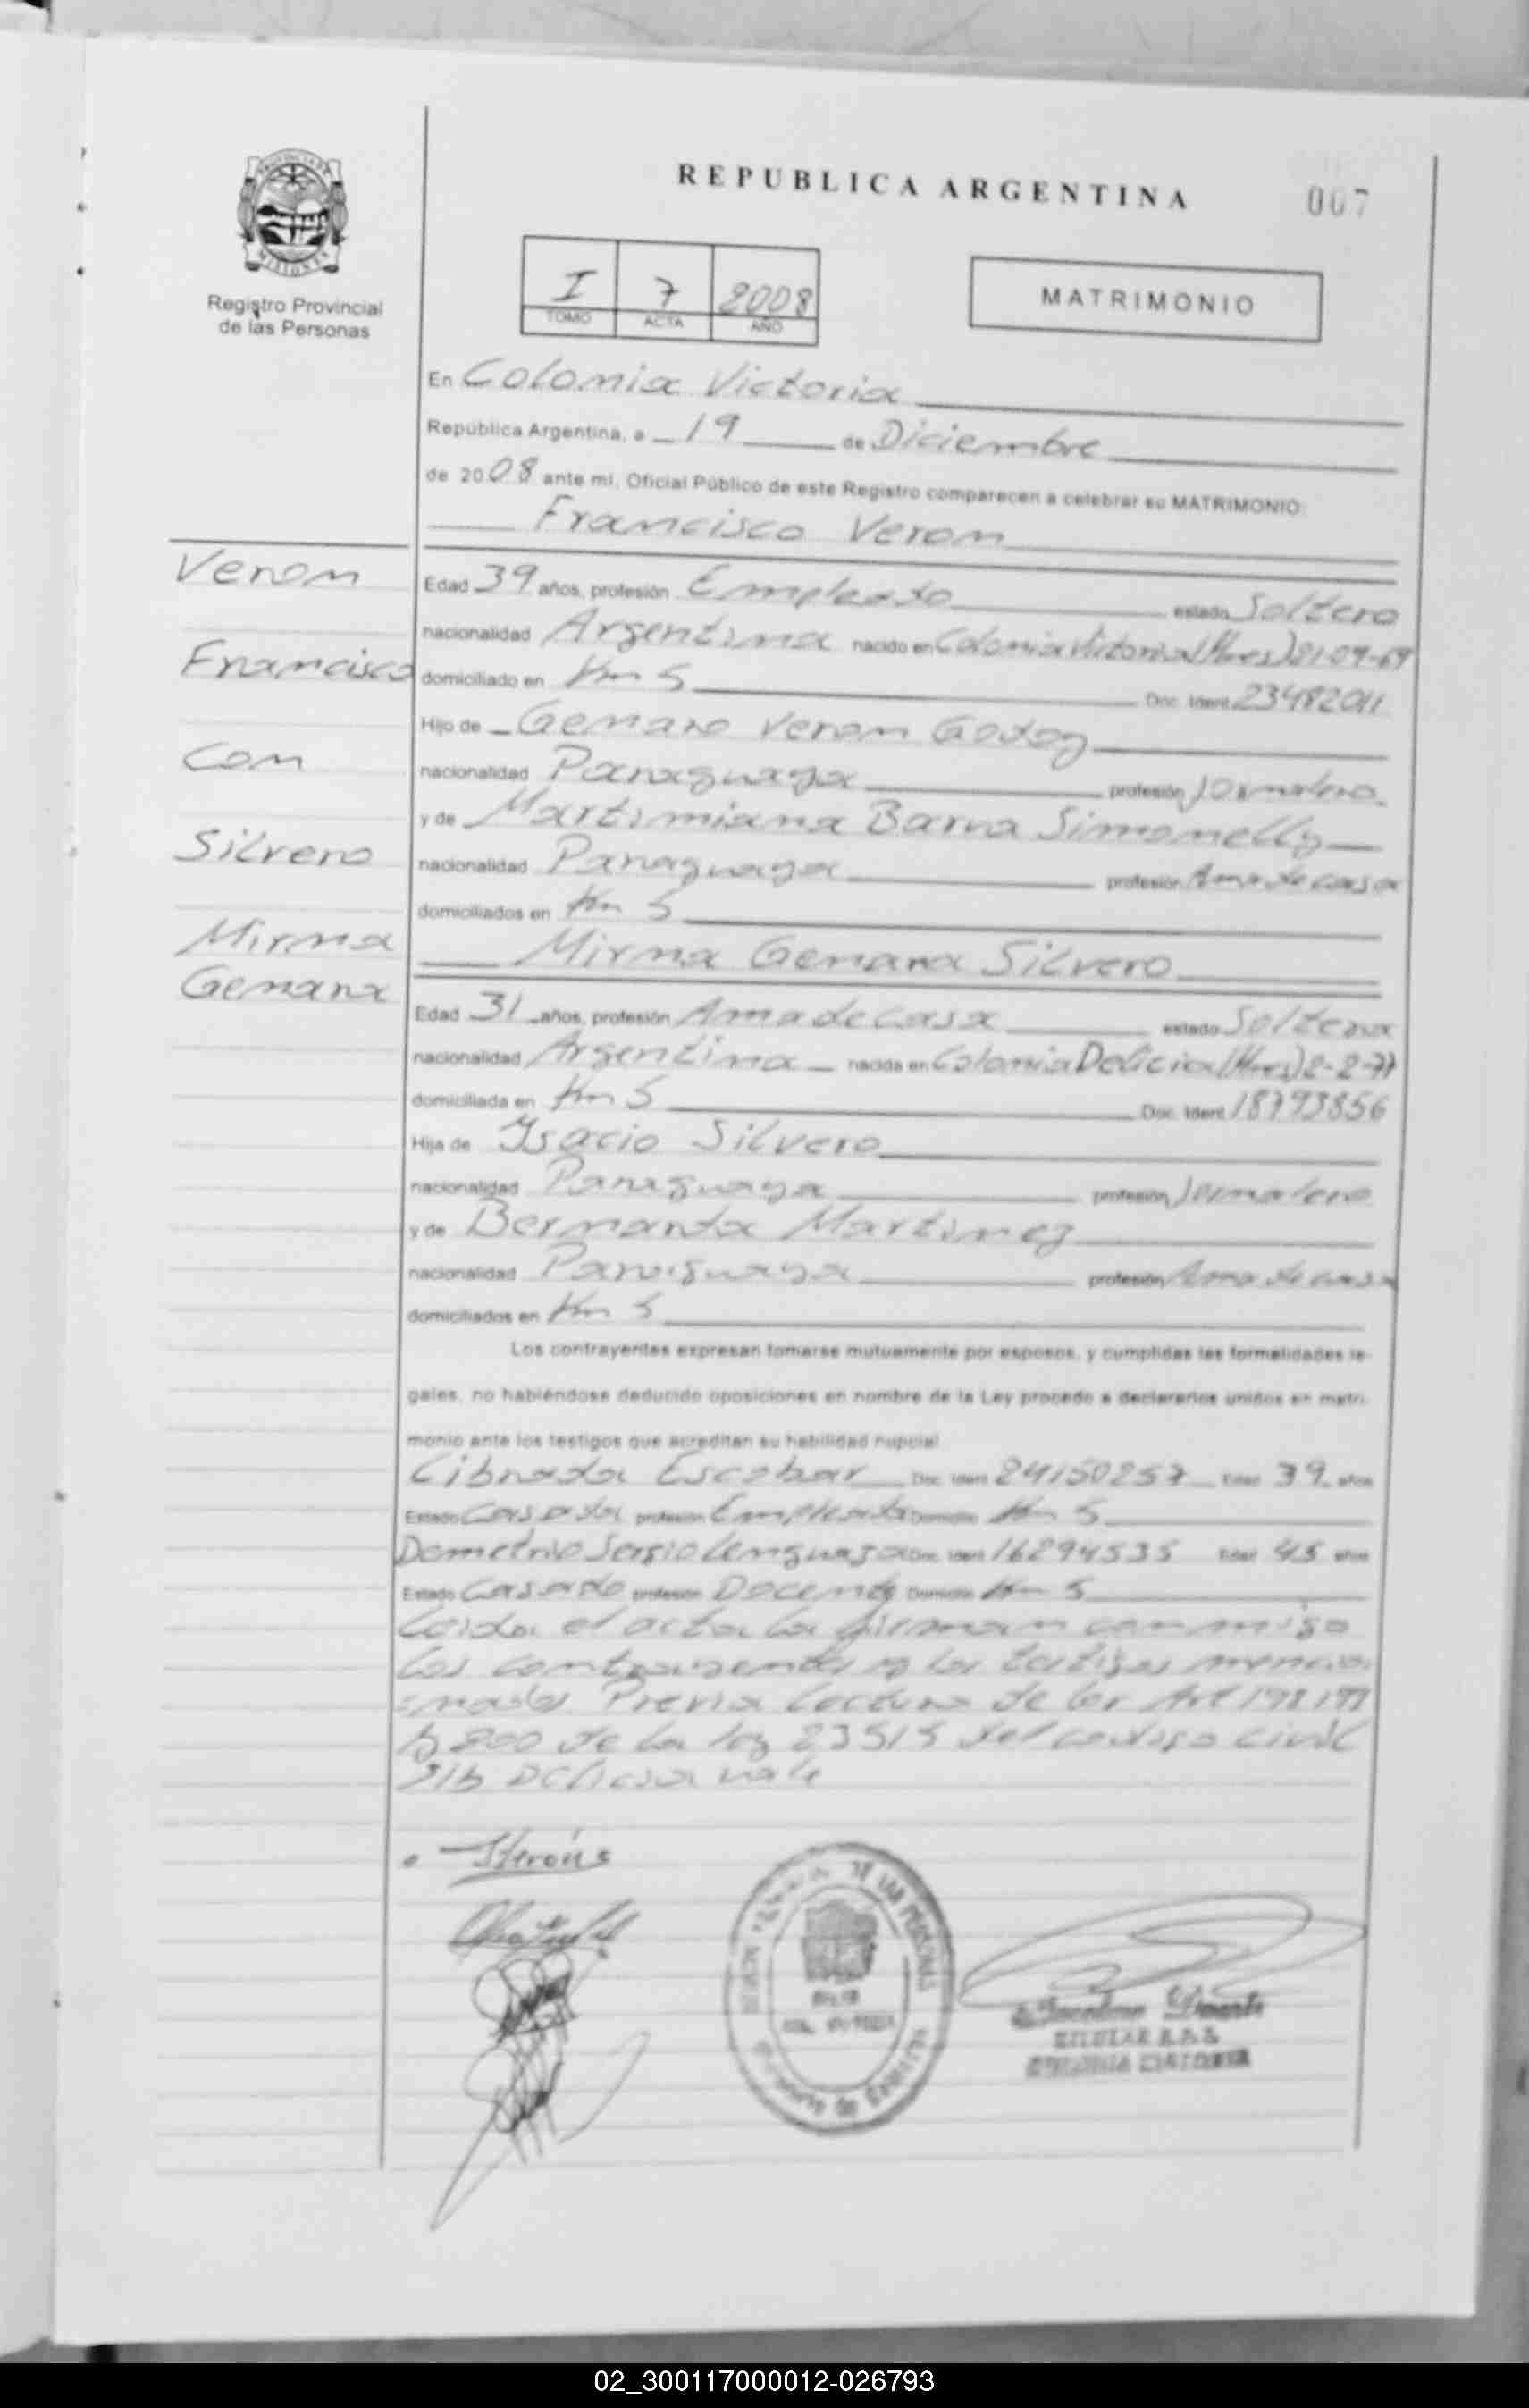 REPUBLICA ARGENTINA
007
PROVINCIA DE
MISIONES
Registro Provincial
de las Personas
I 7 2008
TOMO ACTA AÑO
MATRIMONIO
En Colonia Victoria
República Argentina, a 19 de Diciembre
de 2008 ante mí, Oficial Público de este Registro comparecen a celebrar su MATRIMONIO:
Francisco Veron
Veron
Francisco
Con
Silvero
Mirna
Genara
Edad 39 años, profesión Empleado estado Soltero
nacionalidad Argentina nacido en Colonia Victoria (Mnes)
domiciliado en Km 5 Doc. Ident. 23482011
Hijo de Genaro Veron Godoy
nacionalidad Paraguaya profesión Jornalero
y de Martimiana Barua Simonelly
nacionalidad Paraguaya profesión Ama de casa
domiciliados en Km 5
Mirna Genara Silvero
Edad 31 años, profesión Ama de casa estado Soltera
nacionalidad Argentina nacida en Colonia Delicia (Mnes) 2-2-77
domiciliada en Km 5 Doc. Ident. 18793856
Hija de Isacio Silvero
nacionalidad Paraguaya profesión Jornalero
y de Bernarda Martinez
nacionalidad Paraguaya profesión Ama de casa
domiciliados en Km 5
Los contrayentes expresan tomarse mutuamente por esposos, y cumplidas las formalidades le-
gales, no habiéndose deducido oposiciones en nombre de la Ley procedo a declararlos unidos en matri-
monio ante los testigos que acreditan su habilidad nupcial
Librada Escobar Doc. Ident. 24150257 Edad 39 años
Estado Casada profesión Empleada Domicilio Km 5
Demetrio Sergio Lenguaza Doc. Ident. 16294535 Edad 45 años
Estado Casado profesión Docente Domicilio Km 5
Leida el acta la firman conmigo
los contrayentes y los testigos mencio-
nados Previa lectura de los Art 198 199
y 200 de la ley 23515 del codigo civil
S/b Delicia vale
DE LAS PERSONAS
TITULAR R.P.P.
COLONIA VICTORIA
02_300117000012-026793